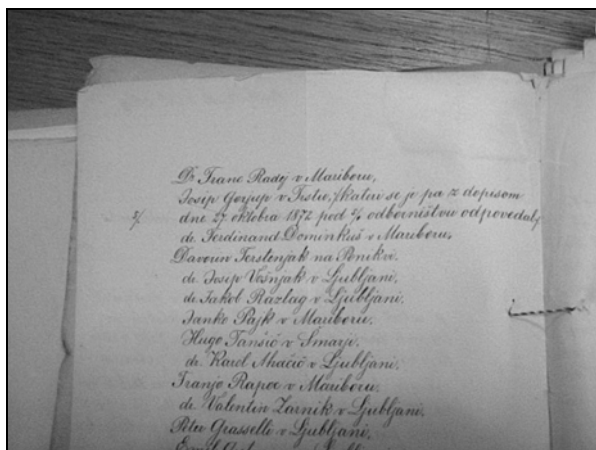 Dr Franc Radej v Mariboru,
Josip Gorjup v Trstu, kateri se je pa z dopisom
dne 27 oktobra 1872 pod odborništvu odpovedal
dr. Ferdinand Dominkuš v Mariboru,
Davorin Terstenjak na Ponikvi.
dr. Josip Vošnjak v Ljubljani,
dr. Jakob Razlag v Ljubljani.
Janko Pajk v Mariboru.
Hugo v Šmarji.
dr. Karel v Ljubljani.
Franjo Rapoc v Mariboru.
dr. Valentin Zarnik v Ljubljani.
Peter Grasselli v Ljubljani,